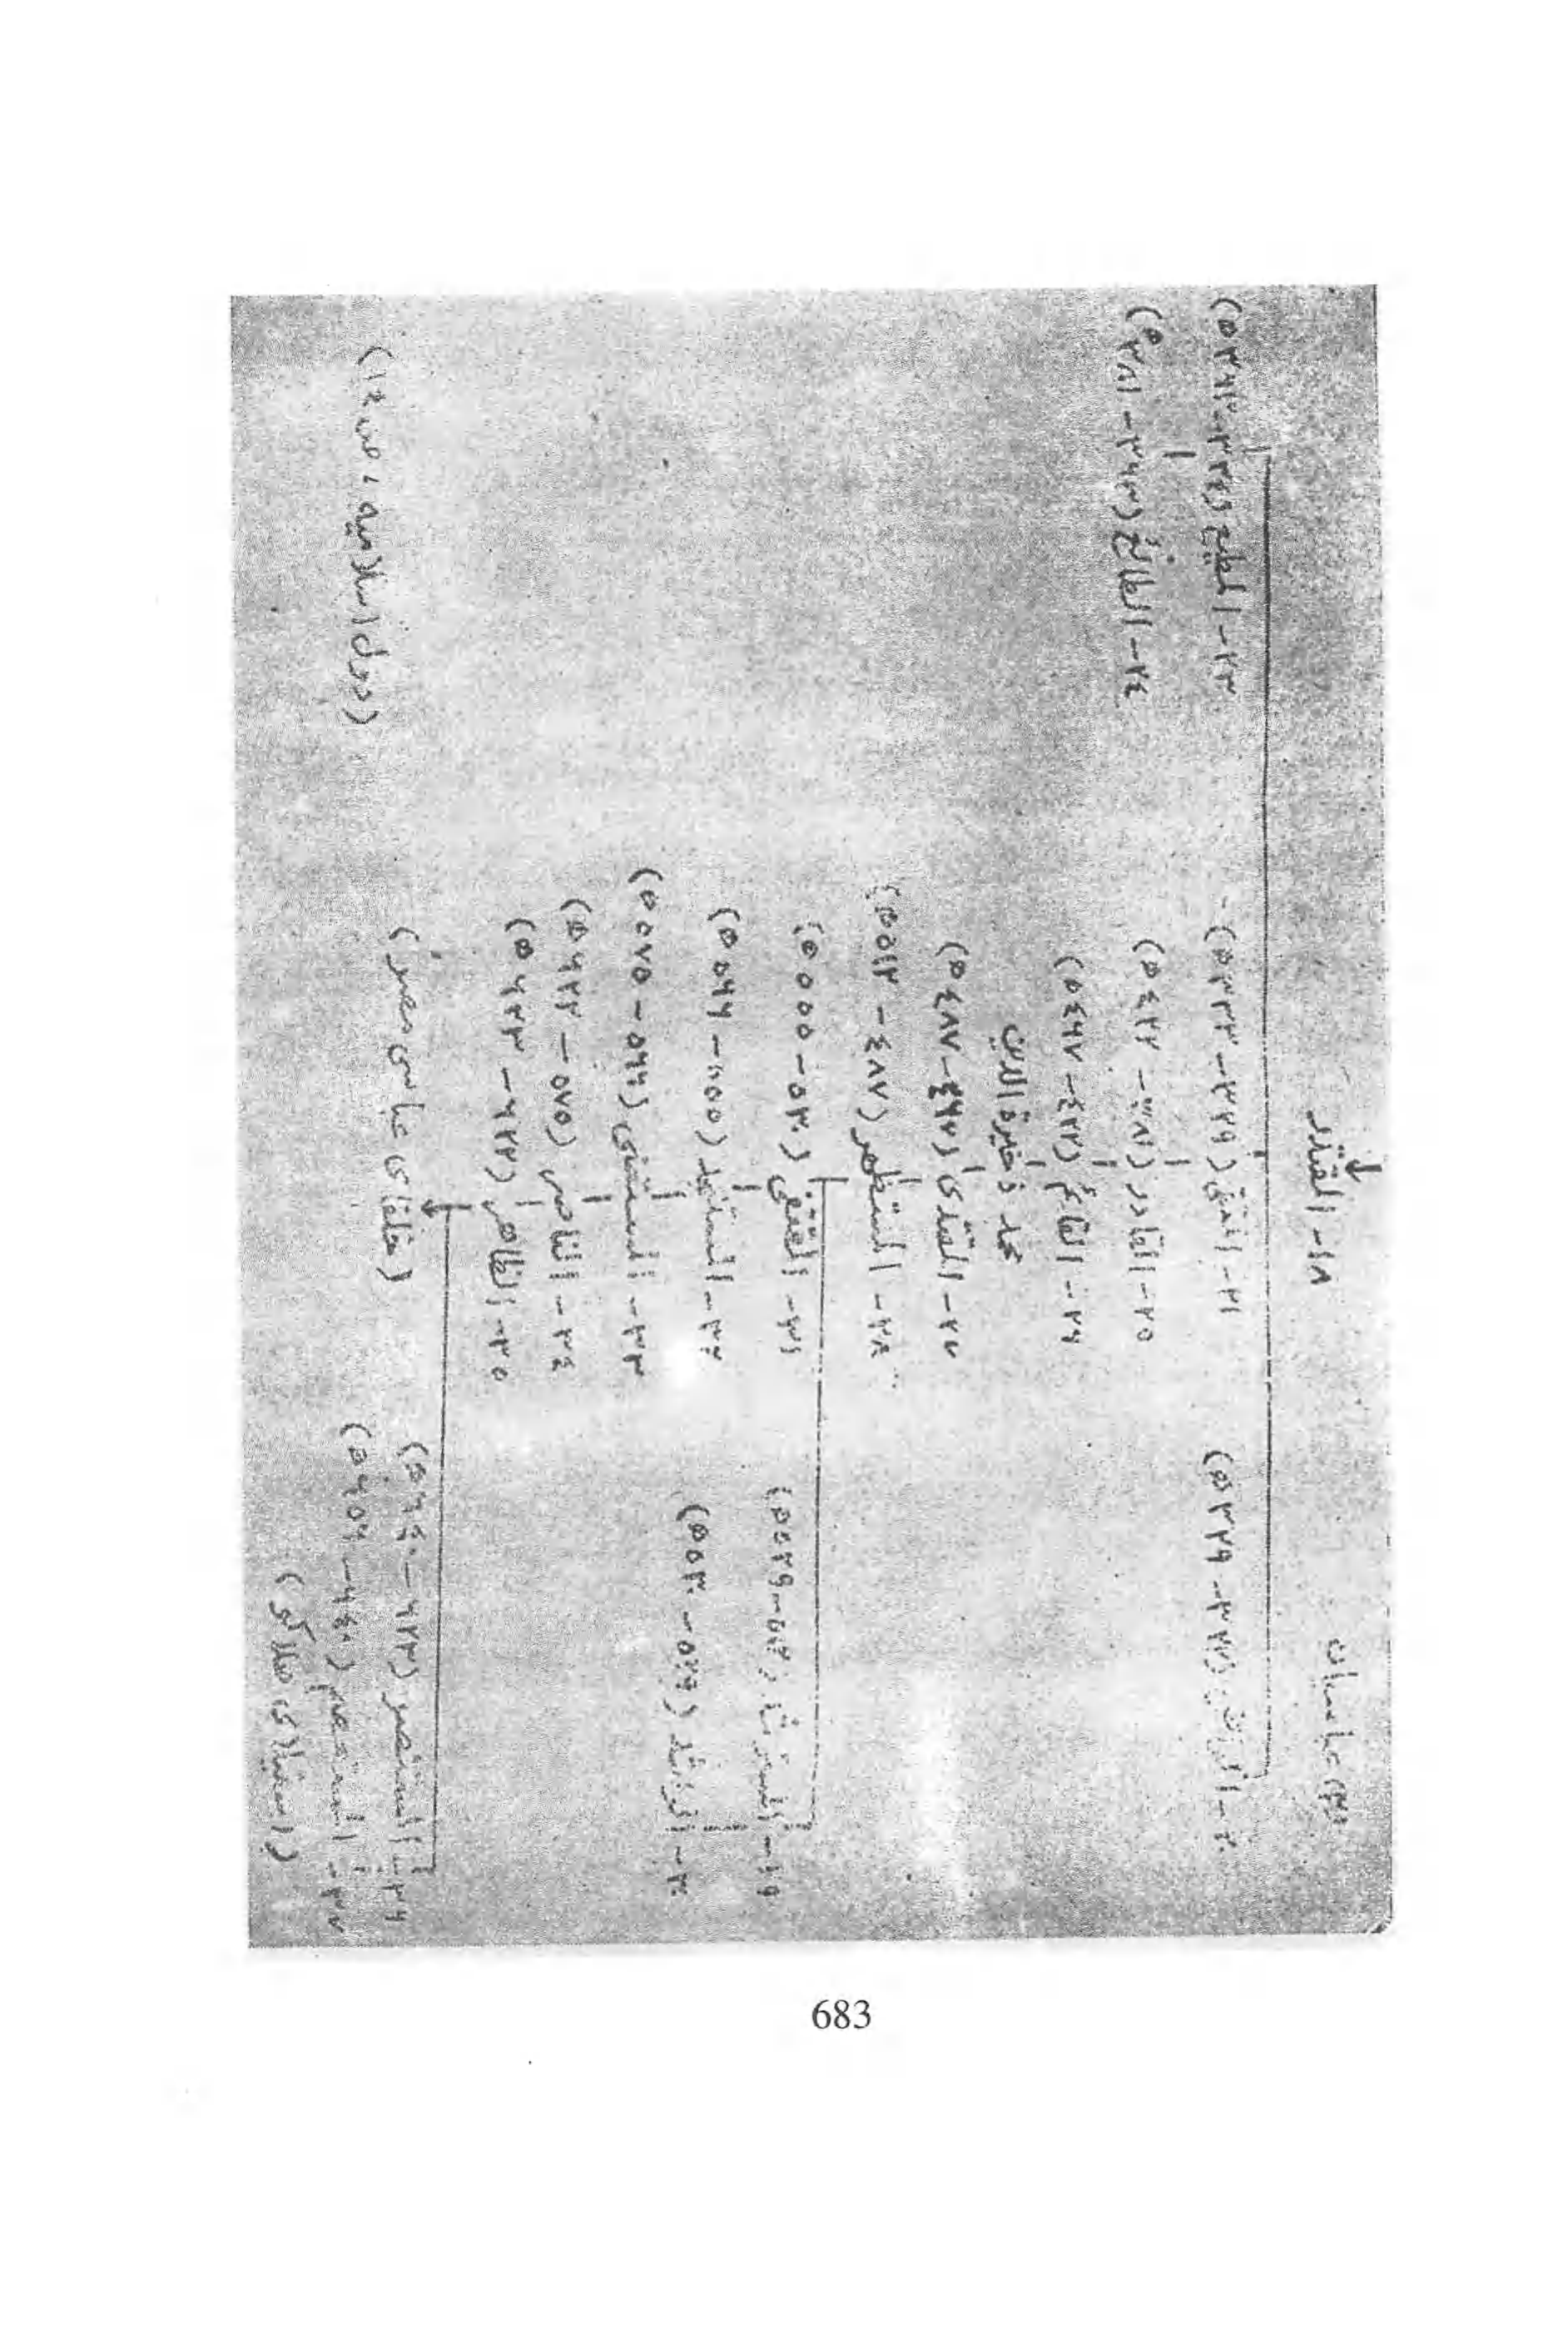 عباسیان
۱۸- المقتدر
۲۰- الراضی (۳۲۲-۳۲۹ه)
۲۱- المتقی (۳۲۹-۳۳۳ه)
۲۳- المطیع (۳۳٤-۳۶۳ه)
۲٤- الطائع (۳۶۳-۳۸۱ه)
۲۵- القادر (۳۸۱-٤۲۲ه)
۲۶- القائم (٤۲۲-٤۶۷ه)
محمد ذخیرة الدین
۲۷- المقتدی (٤۶۷-٤۸۷ه)
۲۸- المستظهر (٤۸۷-۵۱۲ه)
۲۹- المسترشد (۵۱۲-۵۲۹ه)
۳۰- الراشد (۵۲۹-۵۳۰ه)
۳۱- المقتفی (۵۳۰-۵۵۵ه)
۳۲- المستنجد (۵۵۵-۵۶۶ه)
۳۳- المستضی (۵۶۶-۵۷۵ه)
۳٤- الناصر (۵۷۵-۶۲۲ه)
۳۵- الظاهر (۶۲۲-۶۲۳ه)
۳۶- المستنصر (۶۲۳-۶٤۰ه)
۳۷- المستعصم (۶٤۰-۶۵۶ه)
(استیلای هلاکو)
(خلفای عباسی مصر)
(دول اسلامیه، ص ۱٤)
683